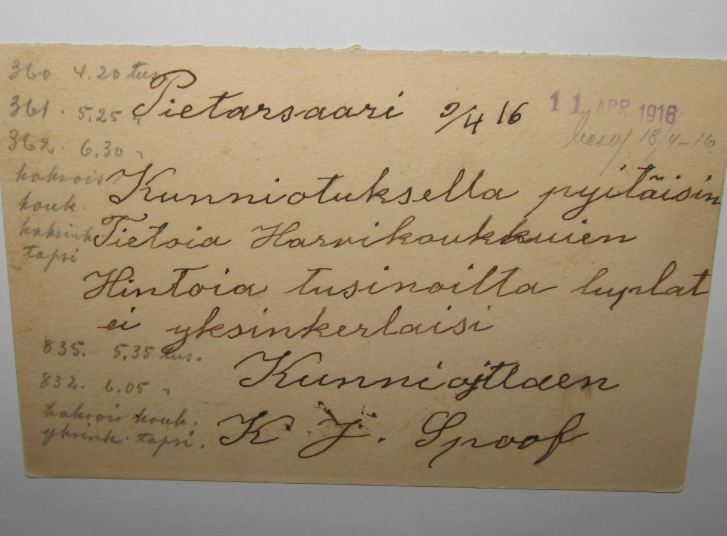 360. 4.20 tus.
361. 5.25 "
362. 6.30 "
kaksois
kouk.
kaksink
tapsi
Pietarsaari 9/4 16
11 APR. 1916
18/4-16
Kunniotuksella pyitäisin
Tietoia Harvikoukkuien
Hintoia tusinoitta luplat
ei yksinkerlaisi
835. 5,35 tus.
832. 6.05 "
kaksois kouk.
yksink. tapsi.
Kunniojttaen
K. J. Spoof